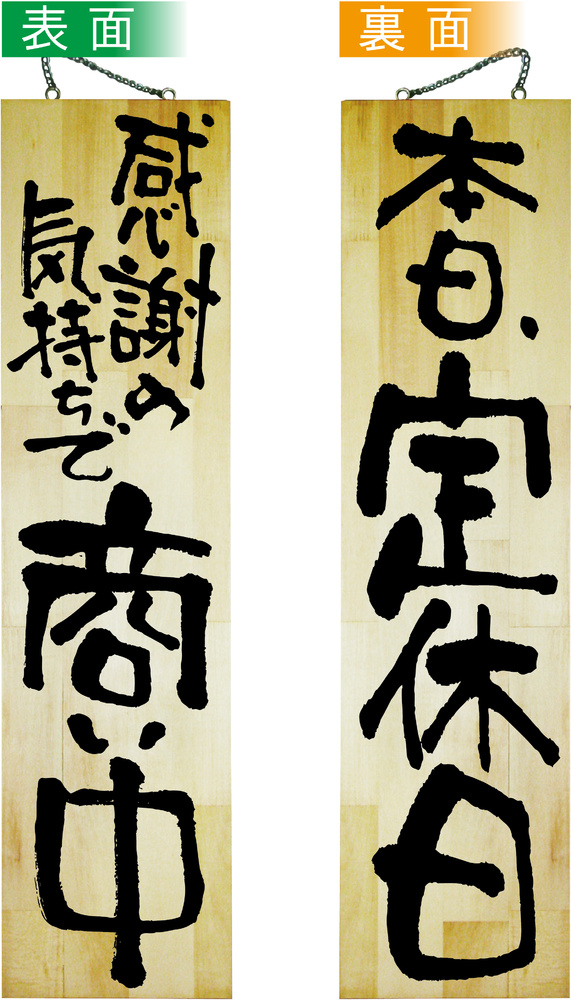 表面
感謝の
気持ちで
商い中
裏面
本日、
定休日